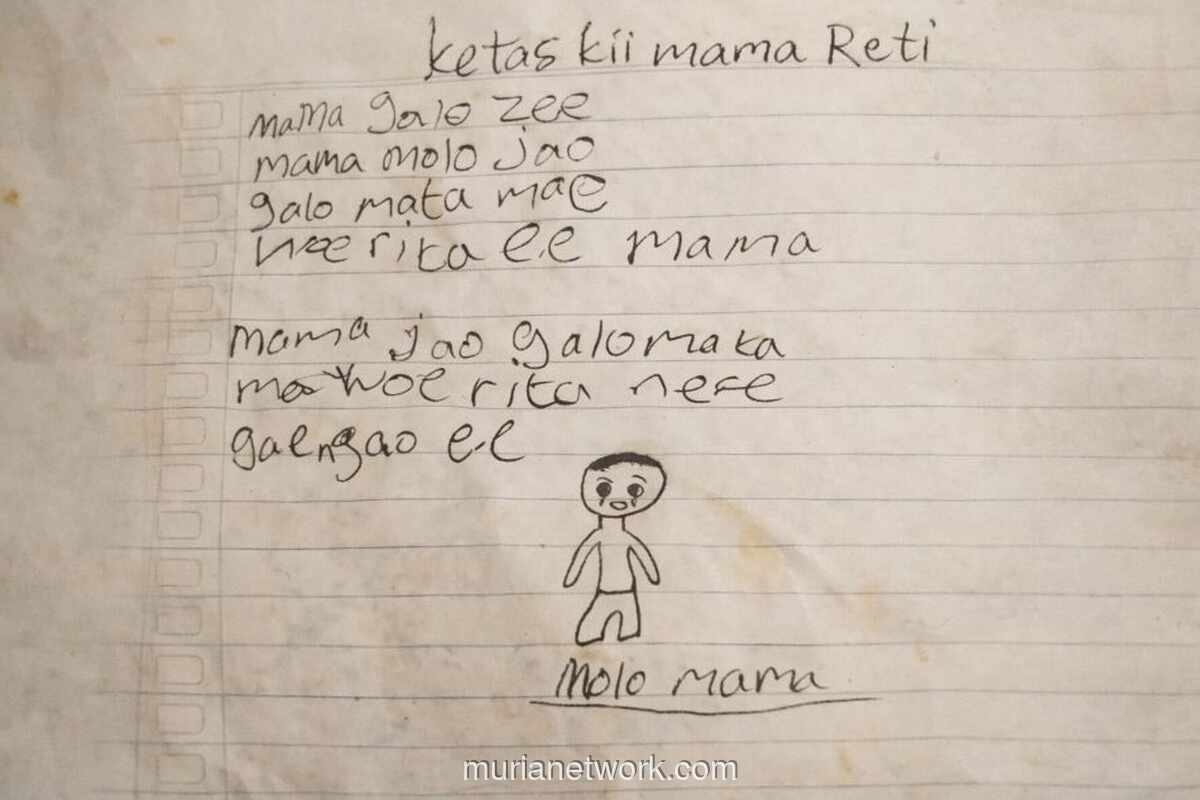 ketas kii mama Reti
mama galo zee
mama molo jao
galo mata mae
woe rita ee mama
mama jao galo mata
mae woe rita ne'e
gae ngao ee
Molo mama
murianetwork.com